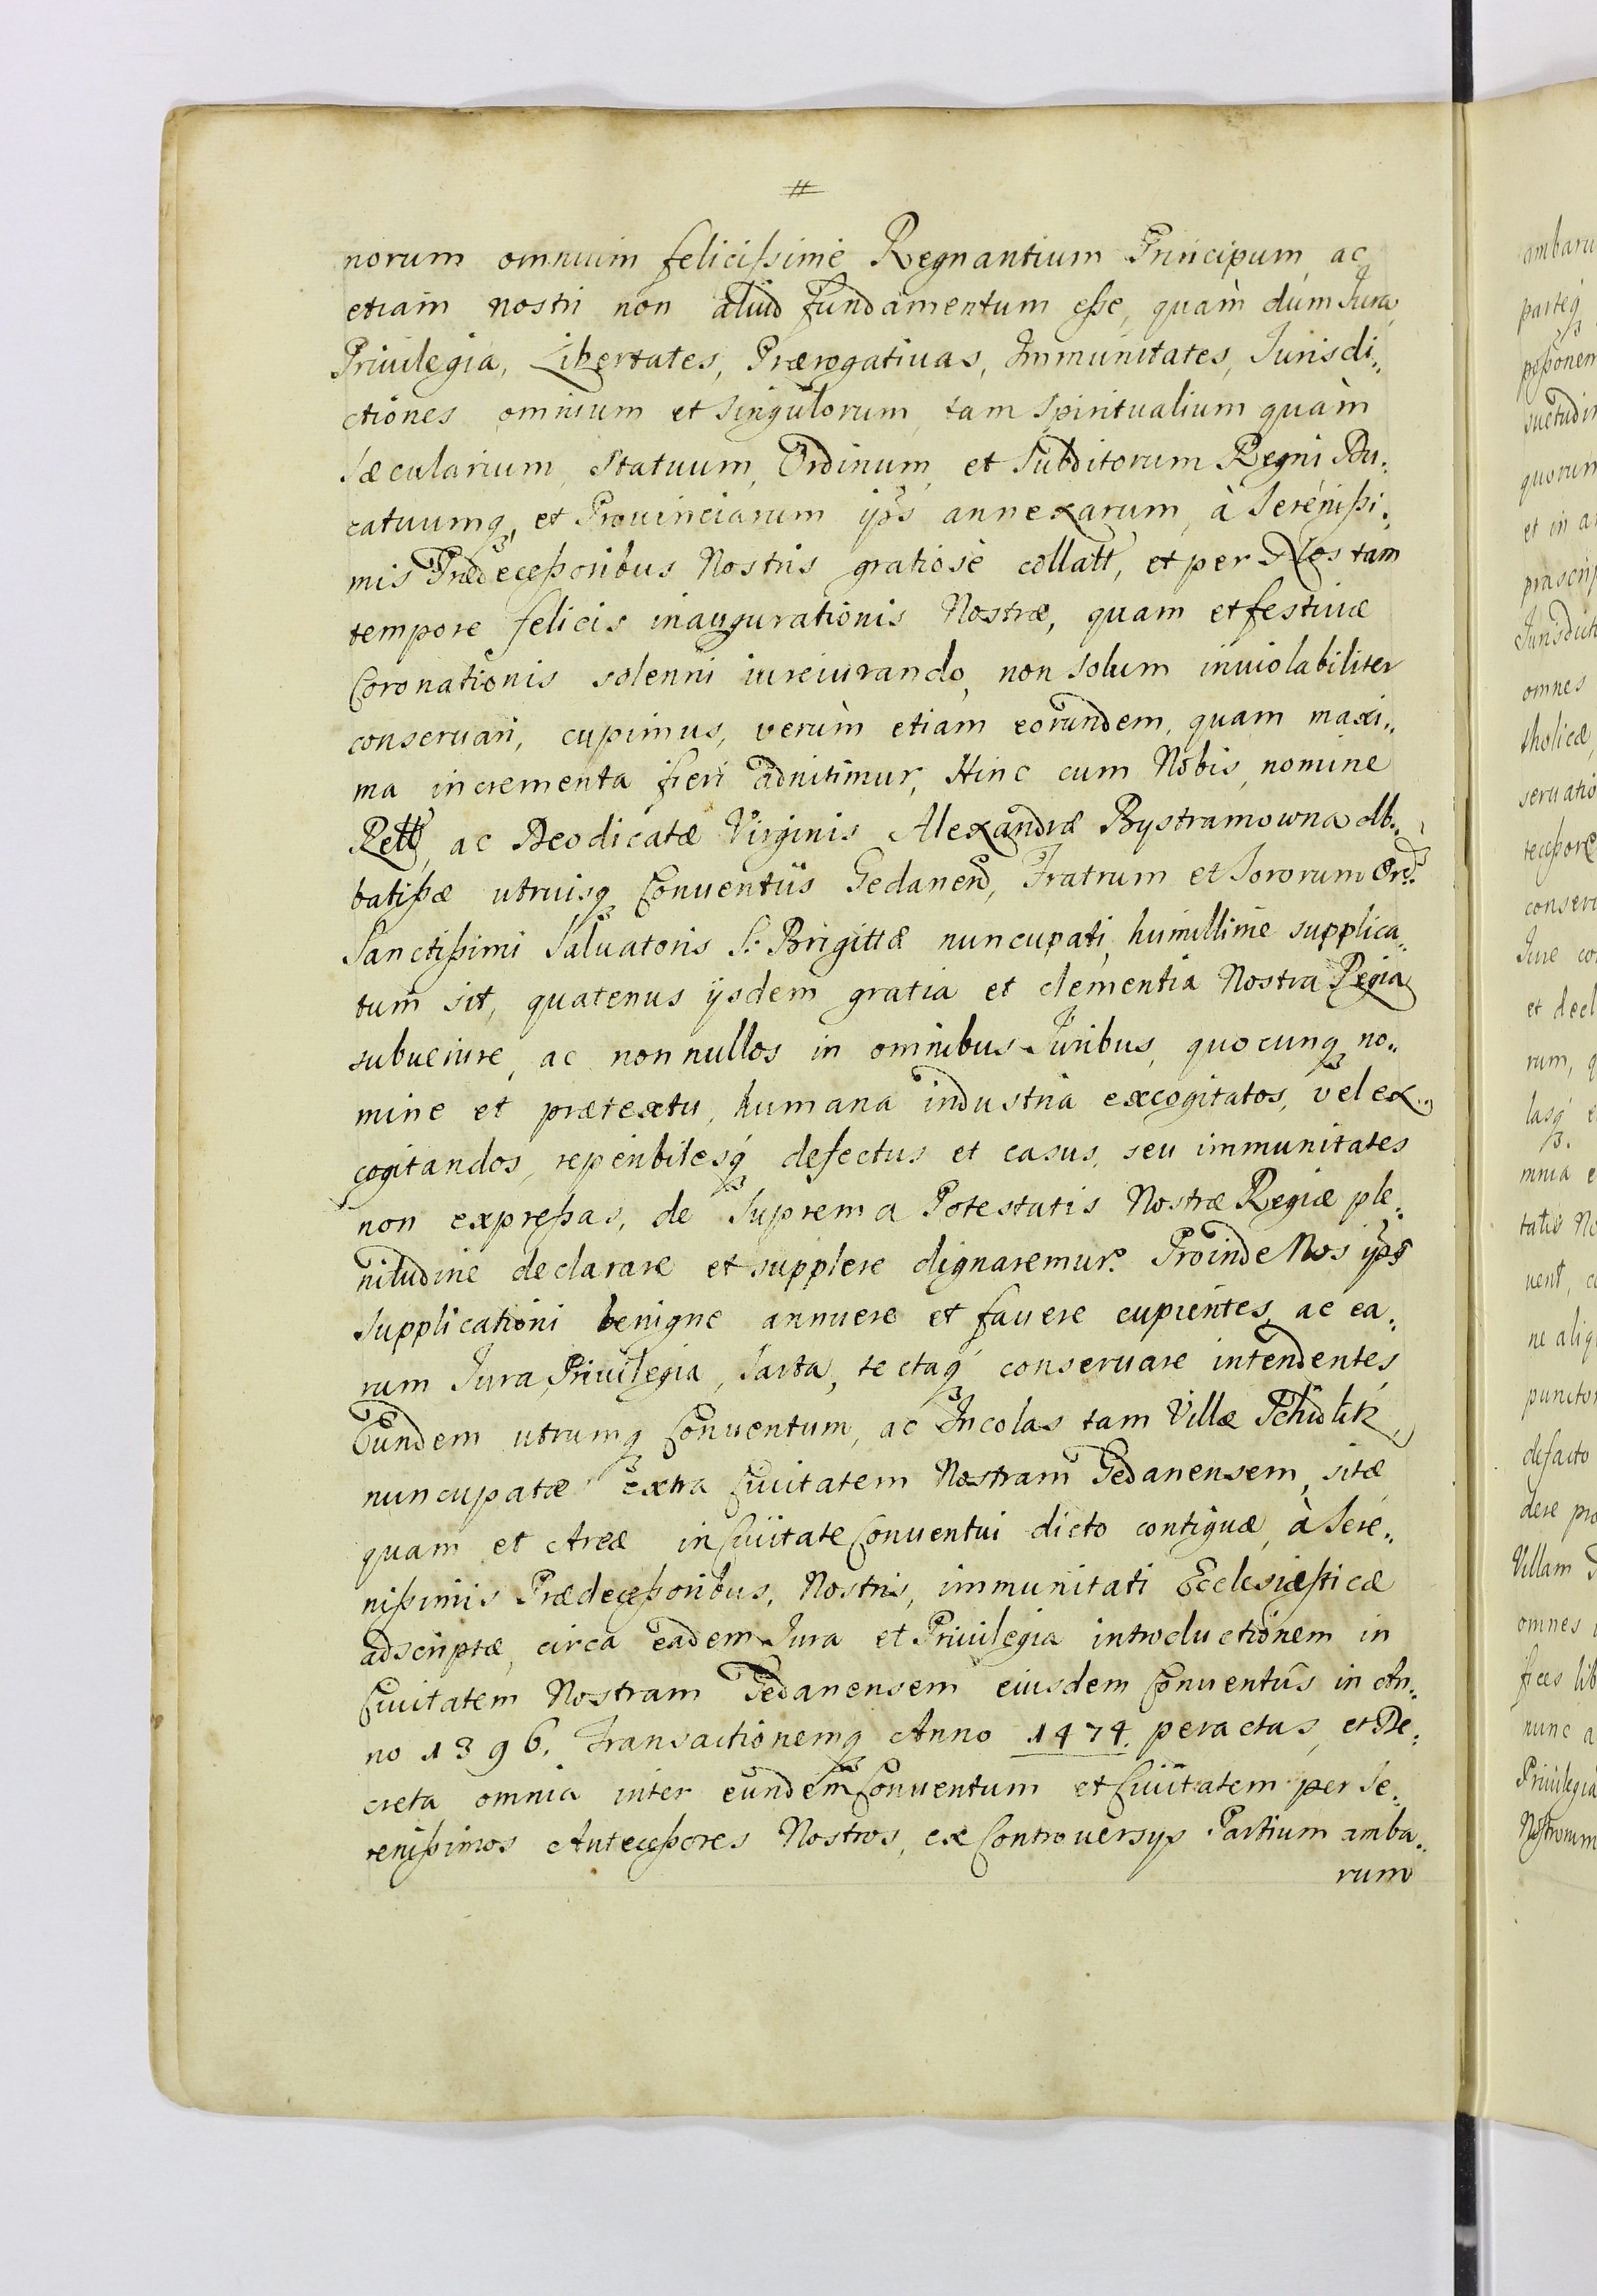 #
norum omnium felicissime Regnantium Principum, ac
etiam nostri non aliud fundamentum esse, quàm dum Iura,
Priuilegia, Libertates, Prærogatiuas, Immunitates, Iurisdi„
ctiones omnium et singulorum, tam Spiritualium quàm
Sæcularium, Statuum, Ordinum, et Subditorum Regni Du„
catuumq₃, et Prouinciarum ijs annexarum, à Serenissi„
mis Prædecessoribus Nostris gratiosè collatt, et per Nos tam
tempore felicis inaugurationis Nostræ, quam et festiuæ
Coronationis solenni iureiurando, non solum inuiolabiliter
conseruari, cupimus, verùm etiam eorundem, quam maxi„
ma incrementa fieri adnitimur, Hinc cum Nobis, nomine
ac Deodicatæ Virginis Alexandræ Bystramowna Ab„
batissæ utriusq₃ Conuentûs Gedanen, Fratrum et Sororum Ord:
Sanctissimi Saluatoris S. Brigittæ nuncupati, humillime supplica„
tum sit, quatenus ijsdem gratia et clementia Nostra Regia
subuenire, ac nonnullos in omnibus Iuribus, quocunq₃ no„
mine et prætextu, humana industria excogitatos, vel ex„
cogitandos, reperibilesq₃ defectus et casus, seu immunitates
non expressas, de Suprema Potestatis Nostræ Regiæ ple„
nitudine declarare et supplere dignaremur. Proinde Nos
Supplicationi benigne annuere et fauere cupientes, ac ea„
rum Iura, Priuilegia, Sarta, tectaq₃ conseruare intendentes,
Eundem utrumq₃ Conuentum, ac Incolas tam Villæ Schidlitz,
nuncupatæ extra Ciuitatem Nostram Gedanensem, sitæ
quam et Areæ in Ciuitate Conuentui dicto contiguæ, à Sere„
nissimis Prædecessoribus, Nostris, immunitati Ecclesiasticæ
adscriptæ, circa eadem Iura et Priuilegia introductionem in
Ciuitatem Nostram Gedanensem eiusdem Conuentûs in An„
no 1396. Transactionemq₃ Anno 1474. peractas, et De„
creta omnia inter eundem Conuentum et Ciuitatem per Se„
renissimos Antecessores Nostros, ex Controuersijs Partium amba„
rum
ambaru
parteq₃
suetudin
quorum
et in a
præscrip
Iurisdicti
omnes
tholicæ
seruatio
tecessore
conseru
Iure co
et decl
rum, q
lasq₃ e
mnia e
tatis No
uent, c
ne aliq
puncto
defacto
dere pro
Villam
omnes
fices lib
nunc a
Priuilegia
Nostrorum